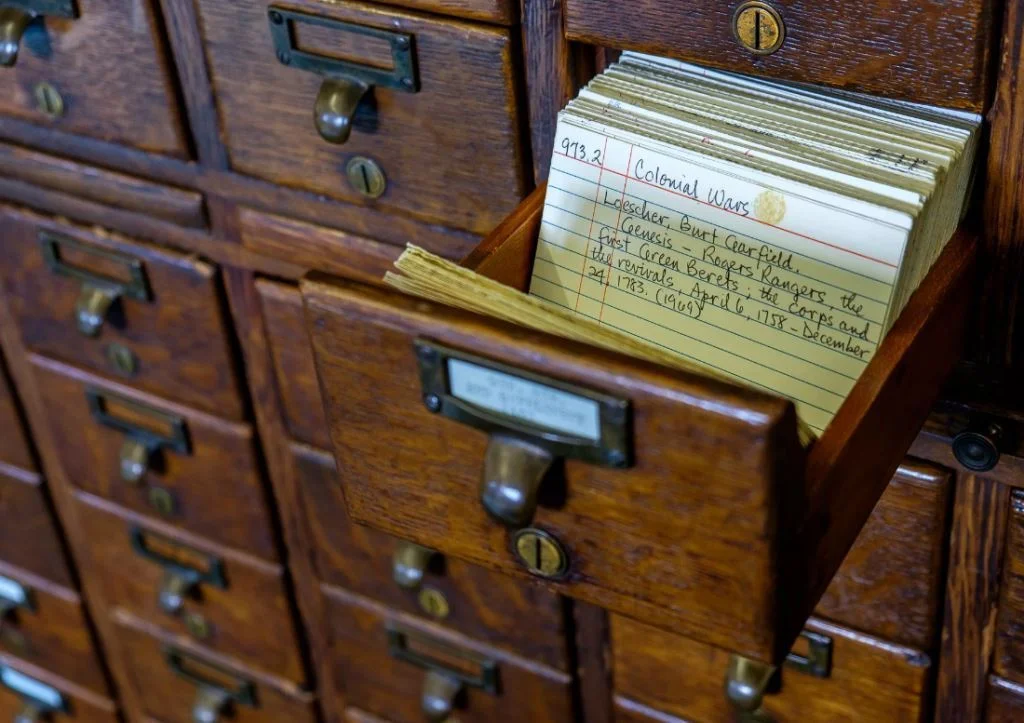 973.2 Colonial Wars
Loescher, Burt Garfield.
Genesis – Rogers Rangers, the
first Green Berets; the corps and
the revivals, April 6, 1758 – December
24, 1783. (1969)